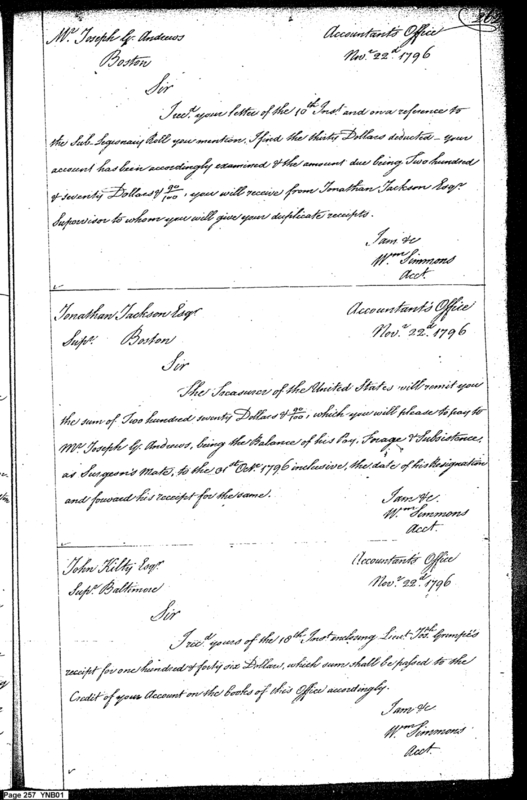 Mr. Joseph G. Andrews Accountants Office
Boston Novr. 22d. 1796
Sir
I recd. your letter of the 10th Inst. and on a reference to
the Sub. Legionary Roll you mention, I find the thirty Dollars deducted – your
account has been accordingly examined & the amount due being Two hundred
& seventy Dollars & 90/100, you will receive from Jonathan Jackson Esqr.
Supervisor to whom you will give your duplicate receipts.
I am &c
Wm Simmons
Acct.
Jonathan Jackson Esqr Accountant's Office
Supr. Boston Novr. 22d. 1796
Sir
The Treasurer of the United States will remit you
the sum of Two hundred seventy Dollars & 90/100, which you will please to pay to
Mr. Joseph G. Andrews, being the Balance of his Pay, Forage & Subsistence,
as Surgeon's Mate, to the 31st Octr. 1796 inclusive, the date of his Resignation
and forward his receipt for the same.
I am &c.
Wm Simmons
Acct.
John Kilty Esqr. Accountants Office
Supr. Baltimore Novr. 22d. 1796
Sir
I recd. yours of the 18th Inst. inclosing Lieut.
receipt for one hundred & forty six Dollars, which sum shall be passed to the
Credit of your Account on the books of this Office accordingly.
I am &c
Wm Simmons
Acct.
Page 257 YNB01